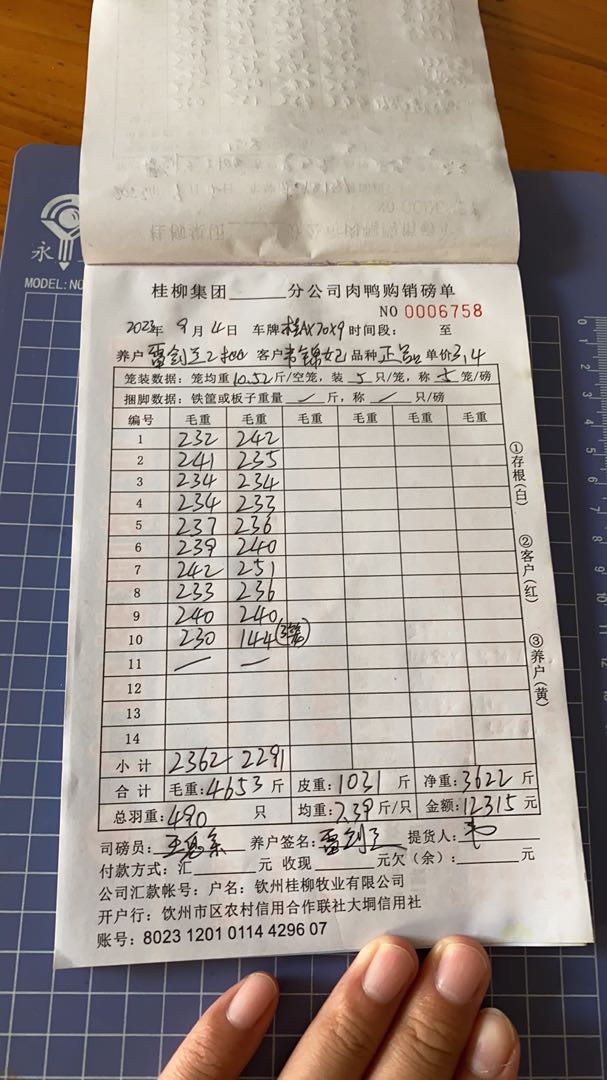 永
MODEL:NO
桂柳集团______分公司肉鸭购销磅单
NO 0006758
2023年 9月4日 车牌桂AX70X9时间段: 至
养户雷剑兰 客户韦锦妃 品种正品 单价3.4
笼装数据: 笼均重10.52斤/空笼, 装5只/笼, 称5笼/磅
捆脚数据: 铁筐或板子重量 / 斤, 称 / 只/磅
编号 毛重 毛重 毛重 毛重 毛重 毛重
1 232 242
2 241 235
3 234 234
4 234 233
5 237 236
6 239 240
7 242 251
8 233 236
9 240 240
10 230 144(3笼)
11 — —
12
13
14
小计 2362 2291
合计 毛重:4653斤 皮重:1031斤 净重:3622斤
总羽重:490 只 均重:7.39斤/只 金额:12315元
①存根(白)
②客户(红)
③养户(黄)
司磅员: 养户签名:雷剑兰 提货人:
付款方式: 汇______元 收现______元欠(余):______元
公司汇款帐号: 户名: 钦州桂柳牧业有限公司
开户行: 钦州市区农村信用合作联社大垌信用社
账号: 8023 1201 0114 4296 07